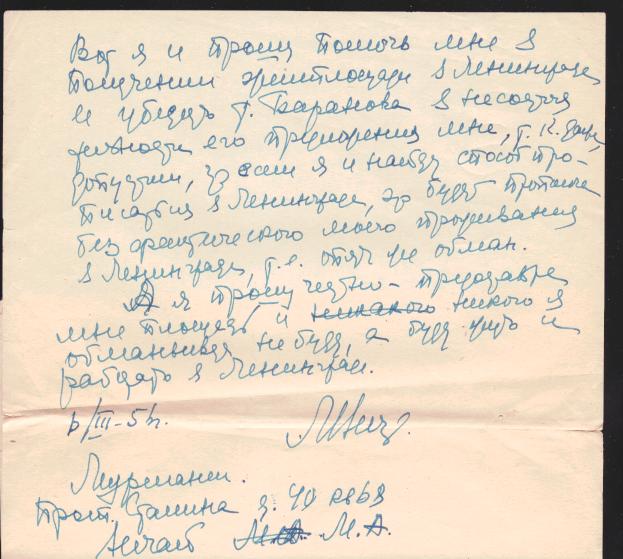 Вот я и прошу помочь мне в
получении жилплощади в Ленинграде
и убедить т. Баранова в несостоя
тельности его предложения мне, т. к. даже,
допустим, что если я и найду способ про-
писаться в Ленинграде, то будет прописка
без фактического моего проживания
в Ленинграде, т.е. опять же обман.
А я прошу честно - предоставьте
мне площадь и никакого никого я
обманывать не буду, а буду жить и
работать в Ленинграде.
6/III-5
Мурманск.
Просп. Сталина д. 40 кв 69
М.А. М.А.